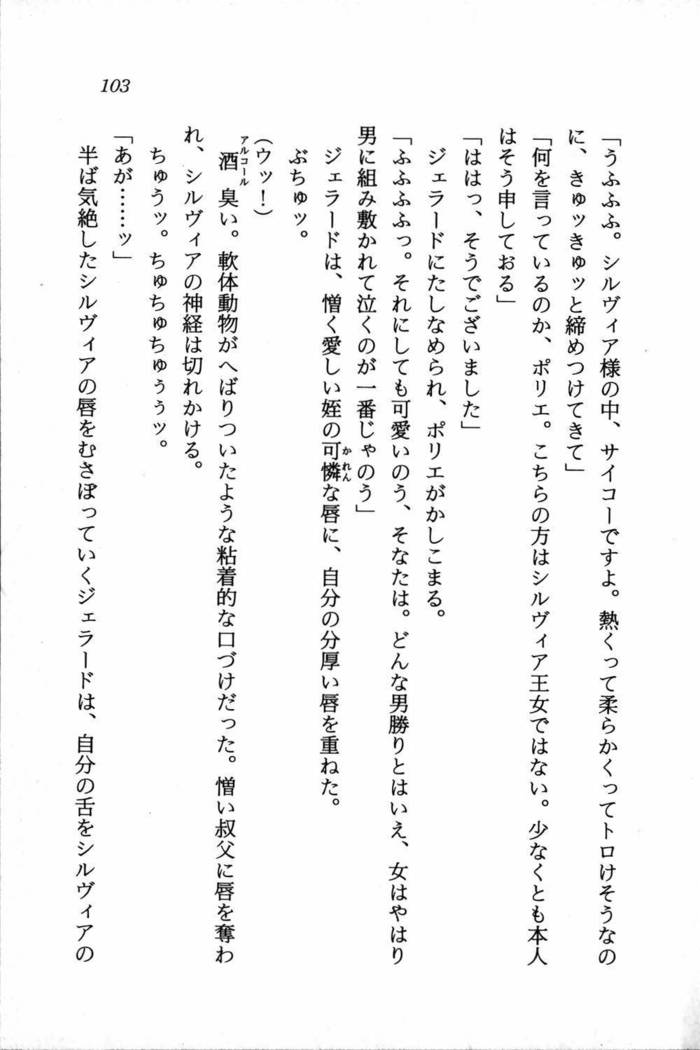 103
「うふふふ。シルヴィア様の中、サイコーですよ。熱くって柔らかくってトロけそうなの
に、きゅッきゅッと締めつけてきて」
「何を言っているのか、ポリエ。こちらの方はシルヴィア王女ではない。少なくとも本人
はそう申しておる」
「ははっ、そうでございました」
ジェラードにたしなめられ、ポリエがかしこまる。
「ふふふふっ。それにしても可愛いのう、そなたは。どんな男勝りとはいえ、女はやはり
男に組み敷かれて泣くのが一番じゃのう」
ジェラードは、憎く愛しい姪の可憐かれんな唇に、自分の分厚い唇を重ねた。
ぶちゅッ。
(ウッ!)
酒アルコール臭い。軟体動物がへばりついたような粘着的な口づけだった。憎い叔父に唇を奪わ
れ、シルヴィアの神経は切れかける。
ちゅうッ。ちゅちゅちゅぅぅッ。
「あが……ッ」
半ば気絶したシルヴィアの唇をむさぼっていくジェラードは、自分の舌をシルヴィアの